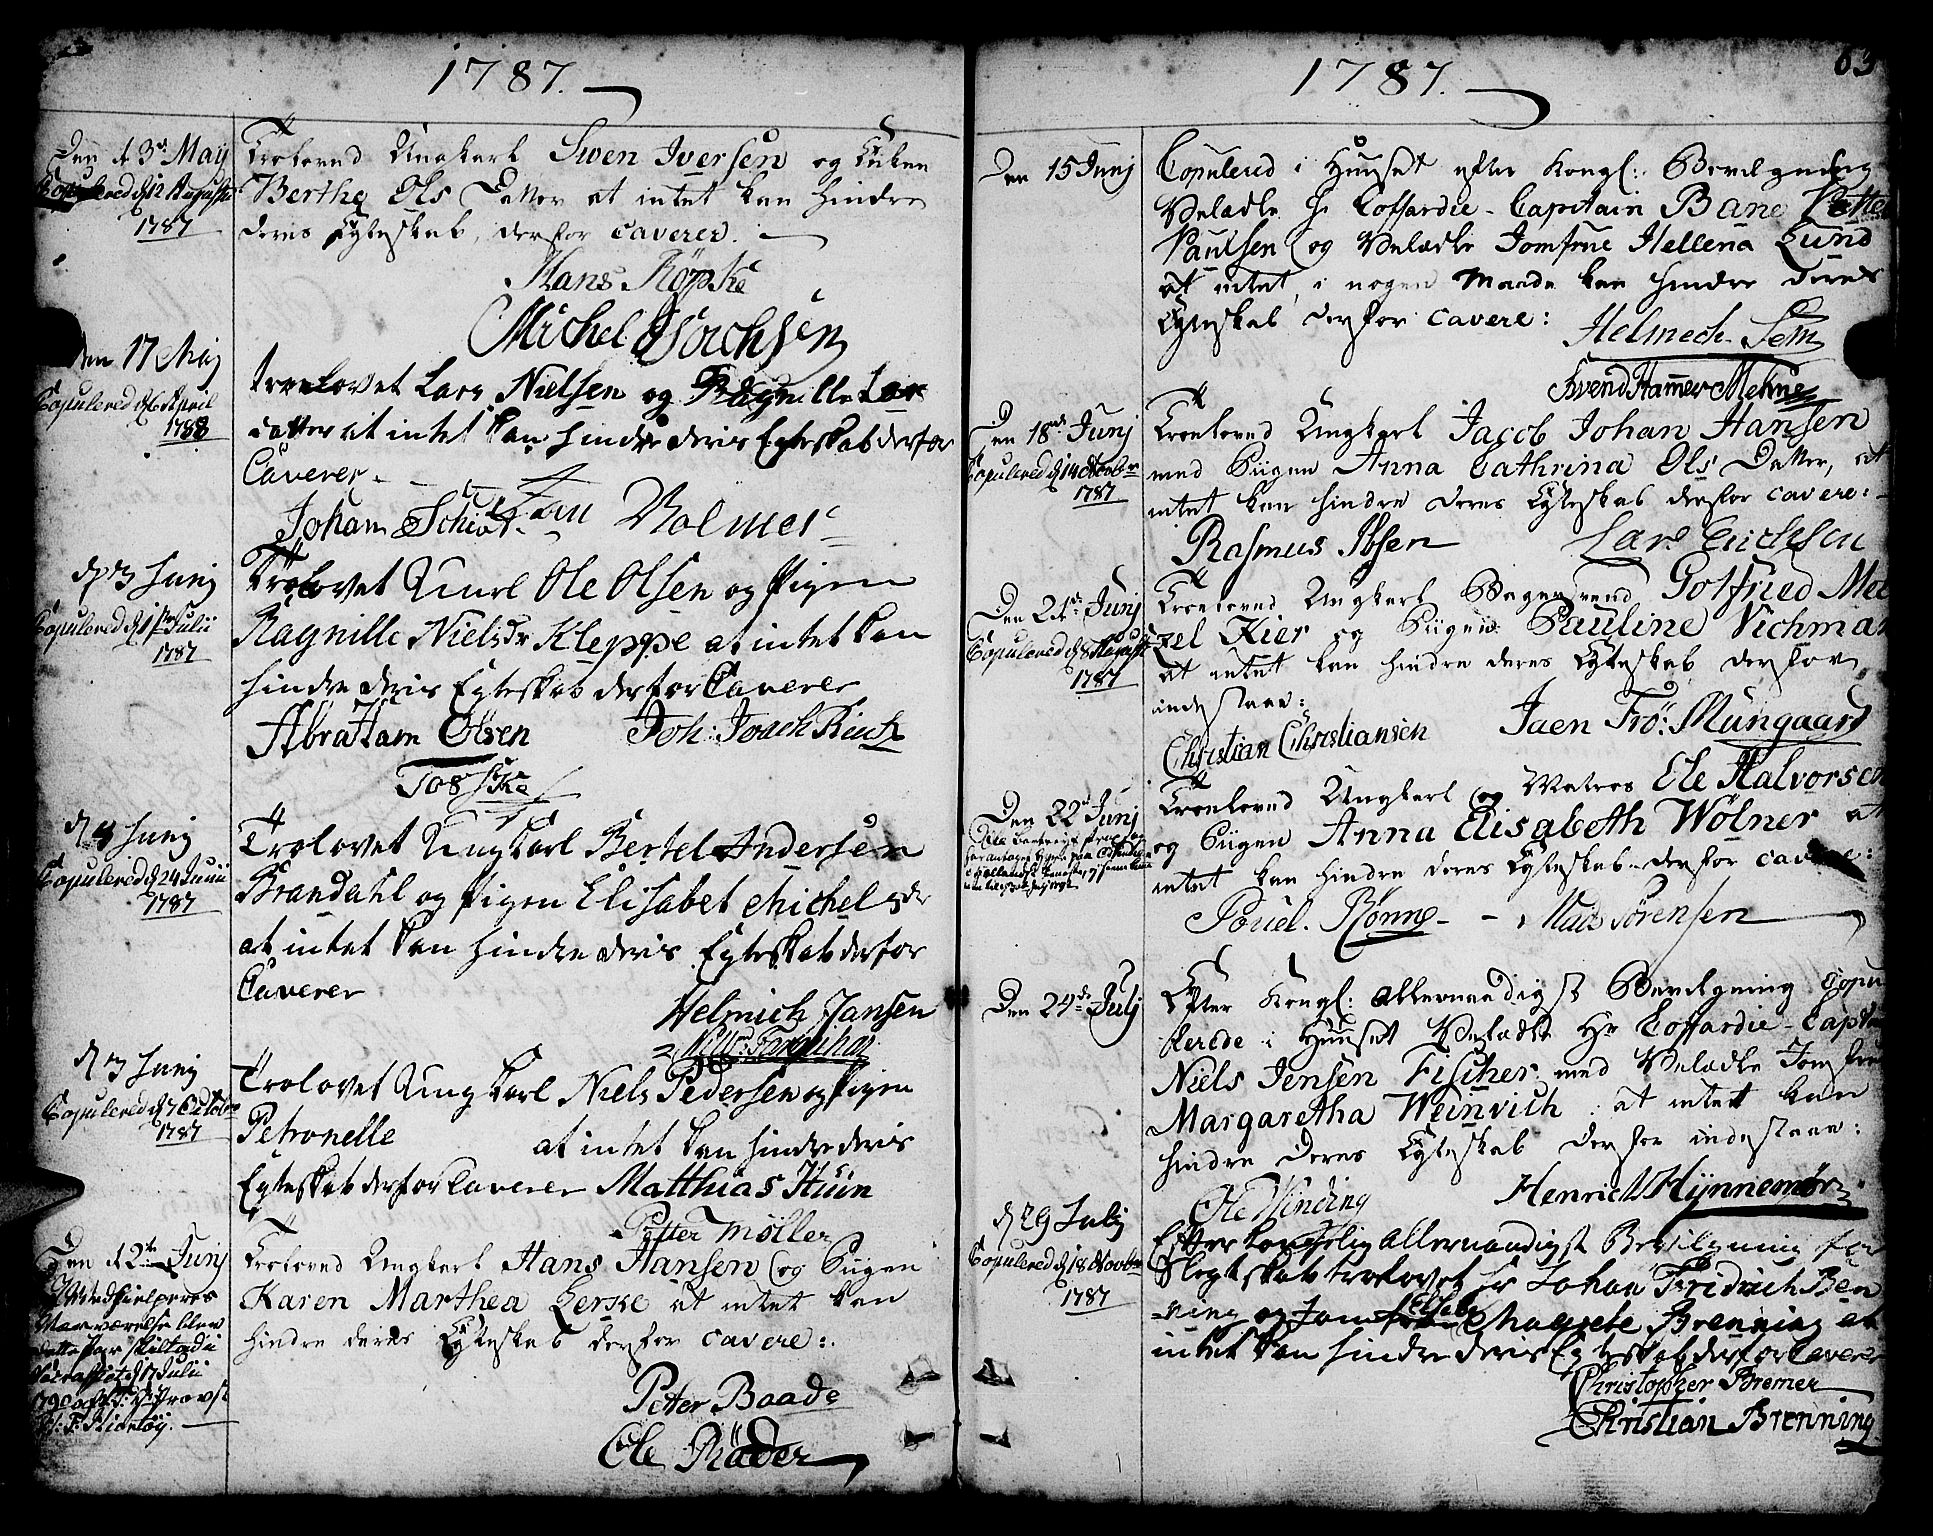 1787.
Den d 3de Maij
Copulered d 12 Augusti
1787
Troloved Ungkarl Swen Iversen og Enken
Berthe Ols Datter at intet kan hindre
deres Egteskab, derfor caverer.
Hans Röpke
Michel Jochsen
den 17 Maij
Copulered d 6 April
1788
troelovet Lars Nielsen og Ragnille Lars
datter at intet kan hindre deris Egteskab derfor
Caverer
Johan Schiøt Volmer
d 3 Junij
Copulered d 1ste Julii
1787
Trolovet Unkarl Ole Olsen og Pigen
Ragnille Nielsdr Kleppe at intet kan
hindre deris Egteskab derfor Caverer
AbraHam Olsen Joh: Joach
Torske
d 4 Junij
Copulered d 24 Junii
1787
Trolovet Ungkarl Bertel Andersen
Brandahl og Pigen Elisabet Michelsdr
at intet kan hindre deris Egteskab derfor
Caverer
Helmich Jansen
d 3 Junij
Copulered d 7 October
1787
Trolovet Ungkarl Niels Pedersen og Pigen
Petronelle at intet kan hindre deris
Egteskab derfor Caverer Matthias Huun
Petter Møller
Den d 12te Junij
blev
dette Par skilt ad i
d 17 Julii
1790 af Provst
Troloved Ungkarl Hans Hansen og Piigen
Karen Marthea Lerske at intet kan
hindre deres Egteskab derfor cavere:
Peter Baade
Ole Räder
1787.
63
Den 15 Junj
Copulered i Huuset efter Kongl: Bevilgning
Velædle Hr Coffardie-Capitain Bane Petter
Paulsen og Velædle Jomfrue Hellena Lund
at intet i nogen Maade kan hindre deres
Egteskab derfor cavere:
Helmech Sem
Svend Hammer Mehne
Den 18de Junj
Copulered d 14 Novbr
1787
Troeloved Ungkarl Jacob Johan Hansen
med Piigen Anna Cathrina Ols Datter, at
intet kan hindre deres Egteskab derfor cavere:
Rasmus Ibsen Lars Erichsen
Den 21de Junj
Copulered d 8 Augusti
1787
Troeloved Ungkarl Bagersvend Gotfried Met
zel Kier og Piigen Pauline Vichman
at intet kan hindre deres Egteskab derfor
indestaae:
Christian Christiansen Jaen Frö: Mungaard
Den 22de Junj
Troeloved Ungkarl og Matros Ole Halvorsen
og Piigen Anna Elisabeth Wölner at
intet kan hindre deres Egteskab derfor cavere:
Povel Rønne Mads Sørensen
Den 24de Julj
Efter Kongl: Allernaadigst Bevilgning Copu
lerede i Huuset Velædle Hr Coffardie-Captain
Niels Jensen Fischer med Velædle Jomfrue
Margaretha Weinwich at intet kan
hindre deres Egteskab derfor indestaae:
Ole Winding Henrich Hÿnnemör
d 29 Julij
Copulered d 18 Novbr
1787
Efter Kongelig Allernaadigst Bevilgning for
Slegtskab trolovet Hr Johan Fridrich Ben
ning og Jomfrue Magrete Brenning at
intet kan hindre deris Egteskab derfor Caverer
Christopher Bremer
Christian Brenning